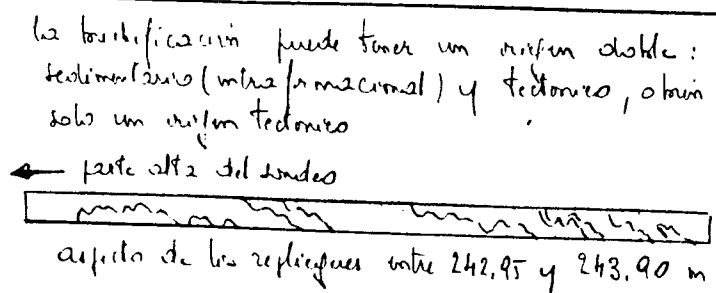 la brechificación puede tener un origen doble:
sedimentario (intraformacional) y tectonico, o bien
solo un origen tectonico
parte alta del sondeo
aspecto de los repliegues entre 242,95 y 243,90 m